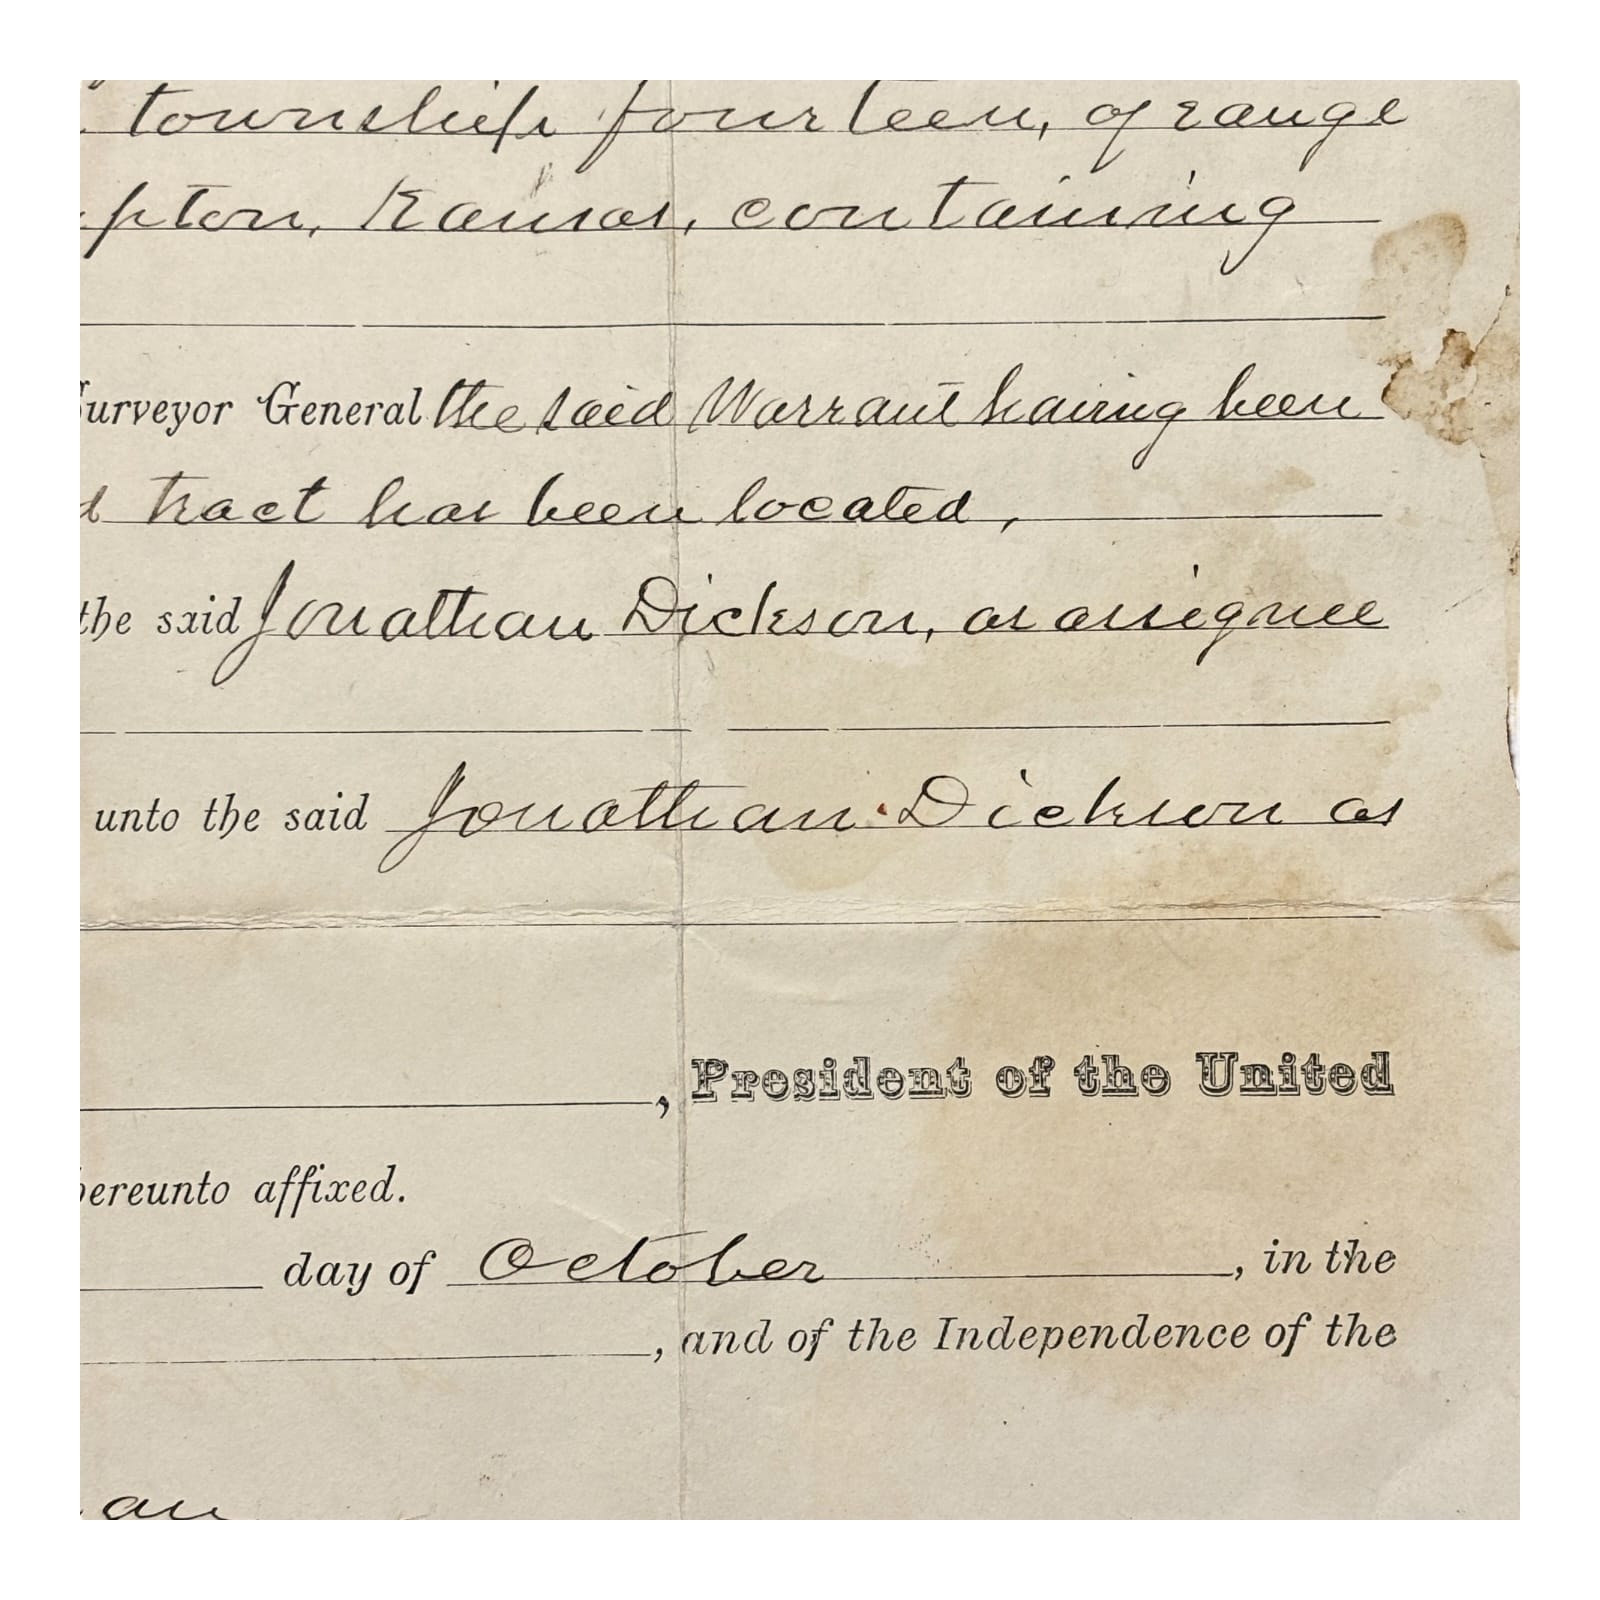 township fourteen, of range
pton, Kansas, containing
Surveyor General the said Warrant having been
d tract has been located,
the said Jonathan Dickson, as assignee
unto the said Jonathan Dickson as
, President of the United
hereunto affixed.
day of October , in the
, and of the Independence of the
an